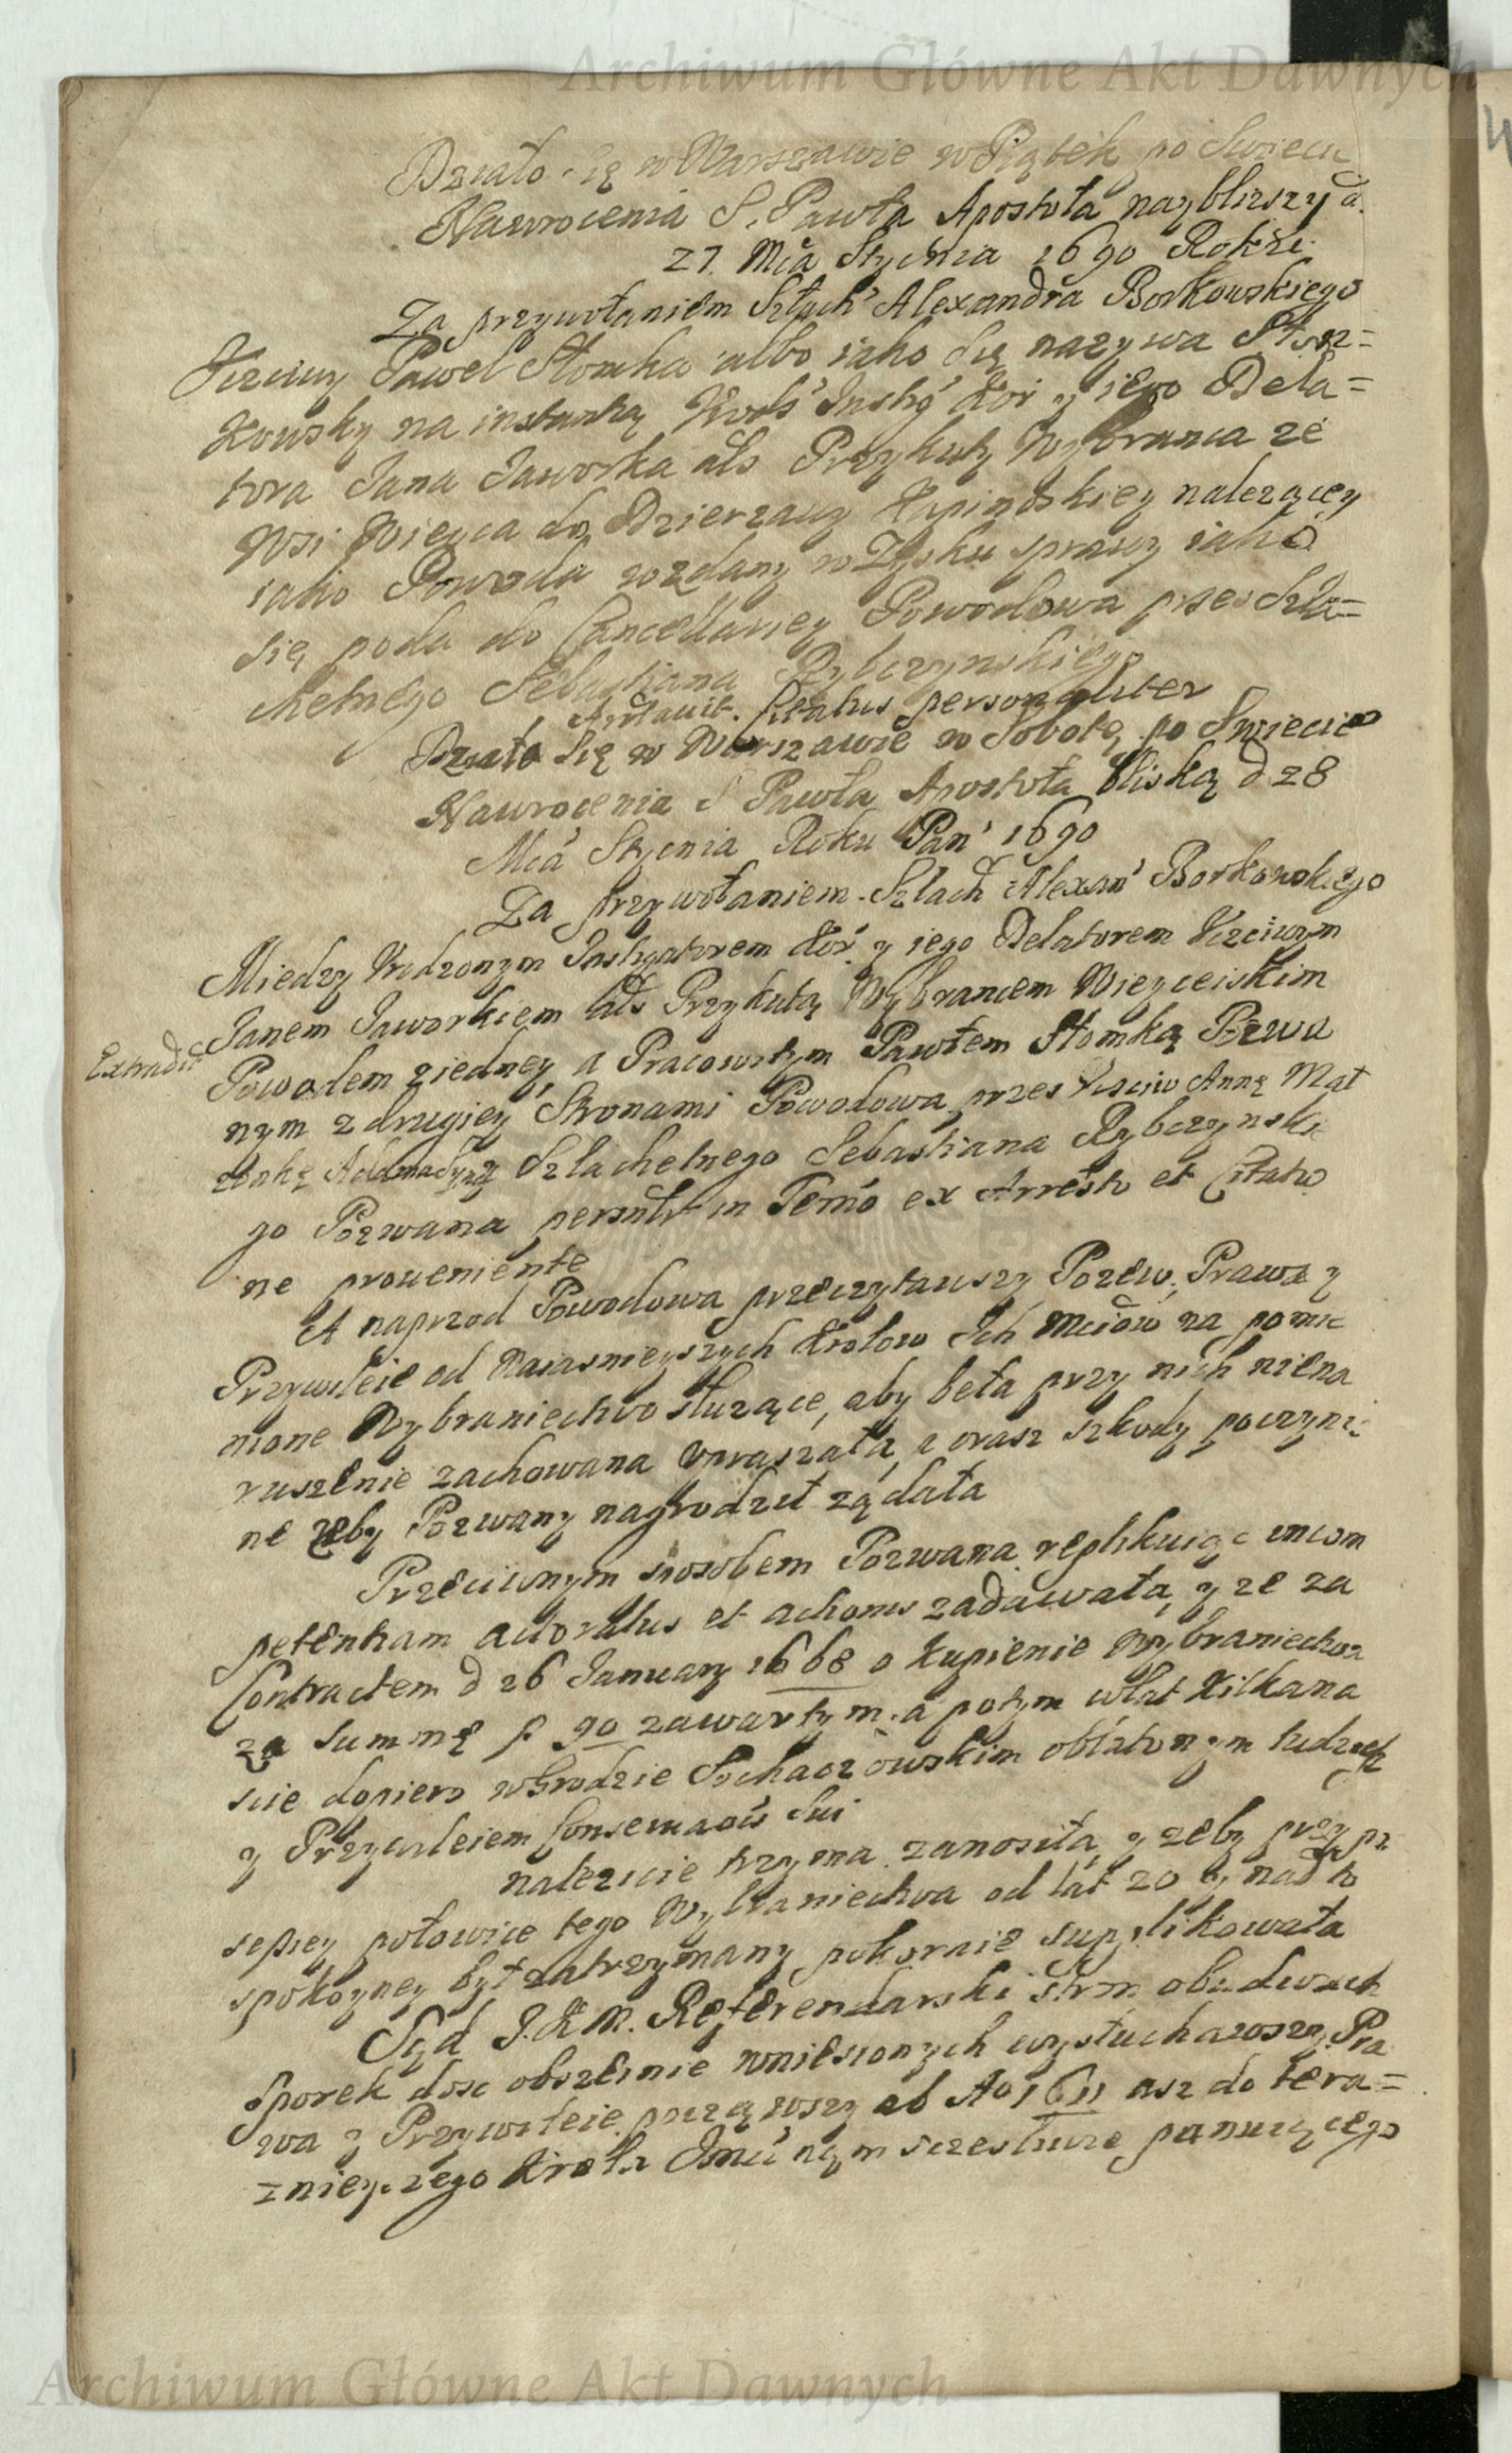 Archiwum Główne Akt Dawnych
Działo się w Warszawie w Piątek po Swięcie
Nawrocenia S. Pawła Apostoła nayblizszy d.
27. Mca Stycnia 1690 Roku.
Za przywołaniem Szlach Alexandra Borkowskiego
Uczciwy Paweł Słomka albo iako się nazywa
na instantią Kor y iego Dela=
tora Jana Jaworka als Przykuty Wybranca ze
Wsi do Dzierzawy nalezącey
iako Powoda wzdany w Zysku sprawy iako
się poda do Cancellariey Powodowa przes Szla=
chetnego Sebastiana Rybczynskiego
Citatus personaliter
Działo Się w Warszawie w Sobotę po Swiecie
Nawrocenia S Pawła Apostoła bliską d 28
Mca Stycnia Roku Pan 1690
Za przywołaniem Szlach Alexan Borkowskiego
Miedzy Urodzonym Instigatorem Kor. y iego Delatorem Uczciwym
Janem Jaworkiem als Przykutą Wybrancem
Extradit
Powodem z iedney a Pracowitym Pawłem Słomką Pozwa
nym z drugiey Stronami Powodowa przes Uczciw Annę Mał
zonkę Szlachetnego Sebastiana Rybczynskie
go Pozwana personlr in Termo ex Arresto et Citatio
ne proueniente
A naprzod Powodowa przeczytawszy Pozew, Prawa y
Przywileie od Naiasnieyszych Krolow Ich Mciow na pomie
nione Wybraniectwo słuzące, aby beła przy nich niena
ruszenie zachowana upraszała, a orasz szkody poczynio
ne zeby Pozwany nagrodzil ządała
Przeciwnym sposobem Pozwana replikuiąc incom
petentiam actoratus et actionis zadawała, y ze za
Contractem d 26 January 1668 o kupienie Wybraniectwa
za summę f 90 zawartym a potym w lat kilkana
scie dopiero w Grodzie Sochaczowskim oblatowanym tudzesz
y Przywileiem Sui
nalezicie trzyma zanosiła, y zeby przy po
sessiey połowice tego Wybraniectwa od lat 20 y nad to
spokoyney był zatrzymany pokornie supplikowała
Sąd J. K M. Referendarski stron obudwuch
sporek dosc obszernie wniesionych wysłuchawszy, Pra
wa y Przywileie począwszy ab Ao 1611 asz do tera=
znieyszego Krola Jmci nąm szczesliwie panuiącego
Archiwum Główne Akt Dawnych